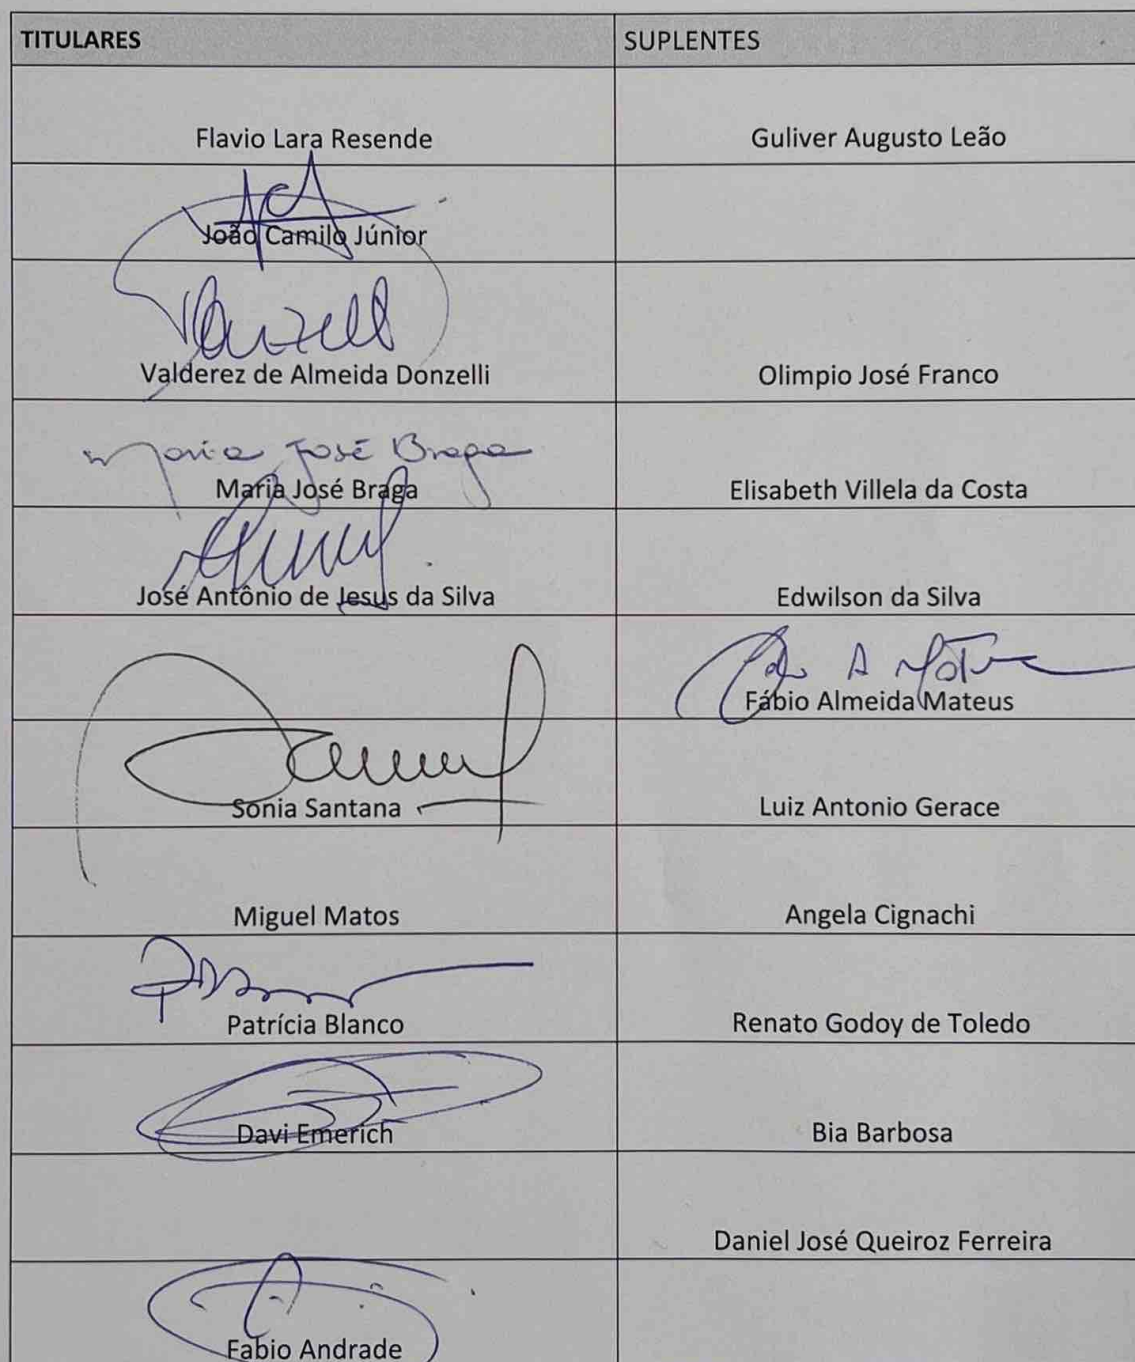 TITULARES SUPLENTES
Flavio Lara Resende Guliver Augusto Leão
João Camilo Júnior
Valderez de Almeida Donzelli Olimpio José Franco
Maria José Braga
Maria José Braga Elisabeth Villela da Costa
José Antônio de Jesus da Silva Edwilson da Silva
Fábio Almeida Mateus
Sonia Santana Luiz Antonio Gerace
Miguel Matos Angela Cignachi
Patrícia Blanco Renato Godoy de Toledo
Davi Emerich Bia Barbosa
Daniel José Queiroz Ferreira
Fabio Andrade